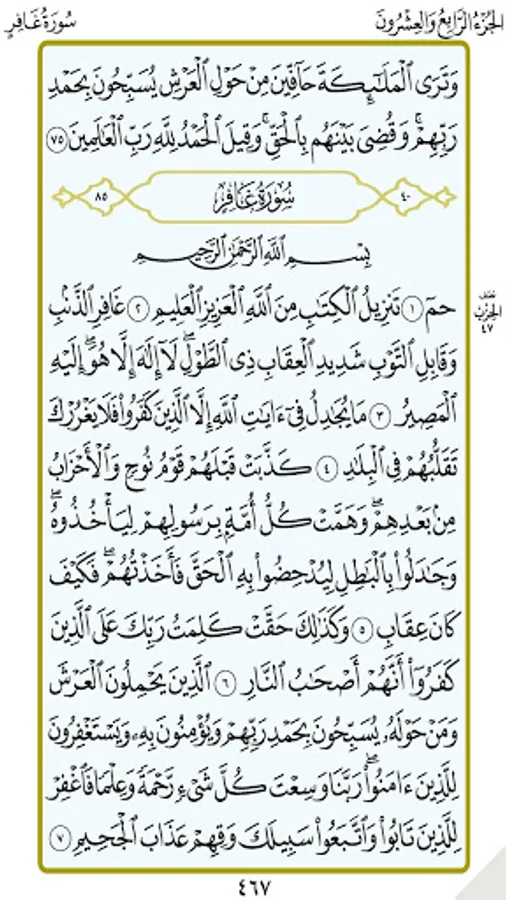 الجزء الرابع والعشرون
سورة غافر
وَتَرَى ٱلْمَلَٰٓئِكَةَ حَآفِّينَ مِنْ حَوْلِ ٱلْعَرْشِ يُسَبِّحُونَ بِحَمْدِ
رَبِّهِمْ ۖ وَقُضِىَ بَيْنَهُم بِٱلْحَقِّ ۖ وَقِيلَ ٱلْحَمْدُ لِلَّهِ رَبِّ ٱلْعَٰلَمِينَ ٧٥
٤٠ سُورَةُ غَافِرٍ ٨٥
بِسْمِ ٱللَّهِ ٱلرَّحْمَٰنِ ٱلرَّحِيمِ
حمٓ ١ تَنزِيلُ ٱلْكِتَٰبِ مِنَ ٱللَّهِ ٱلْعَزِيزِ ٱلْعَلِيمِ ٢ غَافِرِ ٱلذَّنۢبِ
وَقَابِلِ ٱلتَّوْبِ شَدِيدِ ٱلْعِقَابِ ذِى ٱلطَّوْلِ ۖ لَآ إِلَٰهَ إِلَّا هُوَ ۖ إِلَيْهِ
ٱلْمَصِيرُ ٣ مَا يُجَٰدِلُ فِىٓ ءَايَٰتِ ٱللَّهِ إِلَّا ٱلَّذِينَ كَفَرُوا۟ فَلَا يَغْرُرْكَ
تَقَلُّبُهُمْ فِى ٱلْبِلَٰدِ ٤ كَذَّبَتْ قَبْلَهُمْ قَوْمُ نُوحٍ وَٱلْأَحْزَابُ
مِنۢ بَعْدِهِمْ ۖ وَهَمَّتْ كُلُّ أُمَّةٍۭ بِرَسُولِهِمْ لِيَأْخُذُوهُ ۖ
وَجَٰدَلُوا۟ بِٱلْبَٰطِلِ لِيُدْحِضُوا۟ بِهِ ٱلْحَقَّ فَأَخَذْتُهُمْ ۖ فَكَيْفَ
كَانَ عِقَابِ ٥ وَكَذَٰلِكَ حَقَّتْ كَلِمَتُ رَبِّكَ عَلَى ٱلَّذِينَ
كَفَرُوٓا۟ أَنَّهُمْ أَصْحَٰبُ ٱلنَّارِ ٦ ٱلَّذِينَ يَحْمِلُونَ ٱلْعَرْشَ
وَمَنْ حَوْلَهُۥ يُسَبِّحُونَ بِحَمْدِ رَبِّهِمْ وَيُؤْمِنُونَ بِهِۦ وَيَسْتَغْفِرُونَ
لِلَّذِينَ ءَامَنُوا۟ ۖ رَبَّنَا وَسِعْتَ كُلَّ شَىْءٍ رَّحْمَةً وَعِلْمًا فَٱغْفِرْ
لِلَّذِينَ تَابُوا۟ وَٱتَّبَعُوا۟ سَبِيلَكَ وَقِهِمْ عَذَابَ ٱلْجَحِيمِ ٧
نصف
الحزب
٤٧
٤٦٧